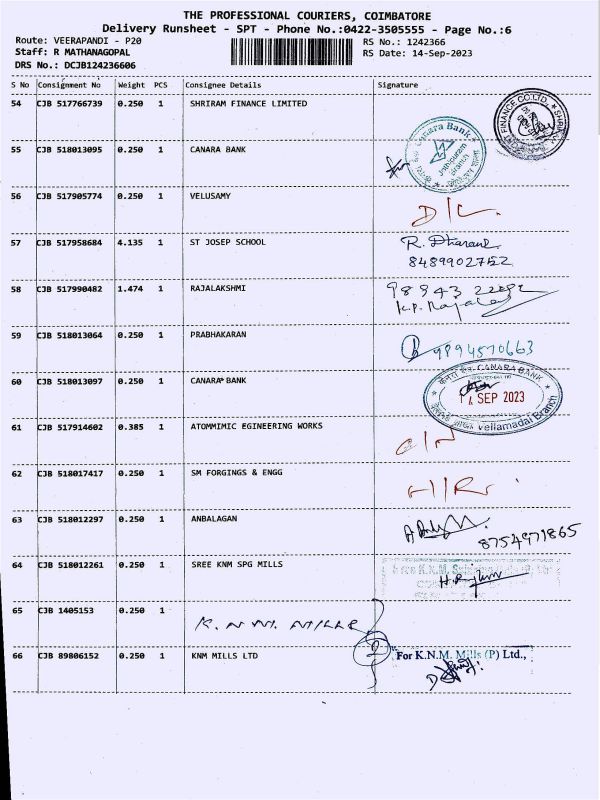 THE PROFESSIONAL COURIERS, COIMBATORE
Delivery Runsheet - SPT - Phone No.:0422-3505555 - Page No.:6
Route: VEERAPANDI - P20 RS No.: 1242366
Staff: R MATHANAGOPAL RS Date: 14-Sep-2023
DRS No.: DCJB124236606
S No Consignment No Weight PCS Consignee Details Signature
54 CJB 517766739 0.250 1 SHRIRAM FINANCE LIMITED
FINANCE CO.LTD.
55 CJB 518013095 0.250 1 CANARA BANK
Canara Bank
Branch
56 CJB 517905774 0.250 1 VELUSAMY D/L
57 CJB 517958684 4.135 1 ST JOSEP SCHOOL
8489902752
58 CJB 517990482 1.474 1 RAJALAKSHMI
K.P.
59 CJB 518013064 0.250 1 PRABHAKARAN 9894570663
60 CJB 518013097 0.250 1 CANARA BANK
CANARA BANK
SEP 2023
Vellamadai Branch
61 CJB 517914602 0.385 1 ATOMMIMIC EGINEERING WORKS
62 CJB 518017417 0.250 1 SM FORGINGS & ENGG
63 CJB 518012297 0.250 1 ANBALAGAN
8754971865
64 CJB 518012261 0.250 1 SREE KNM SPG MILLS
65 CJB 1405153 0.250 1 K. N M. MILLS
66 CJB 89806152 0.250 1 KNM MILLS LTD For K.N.M. Mills (P) Ltd.,